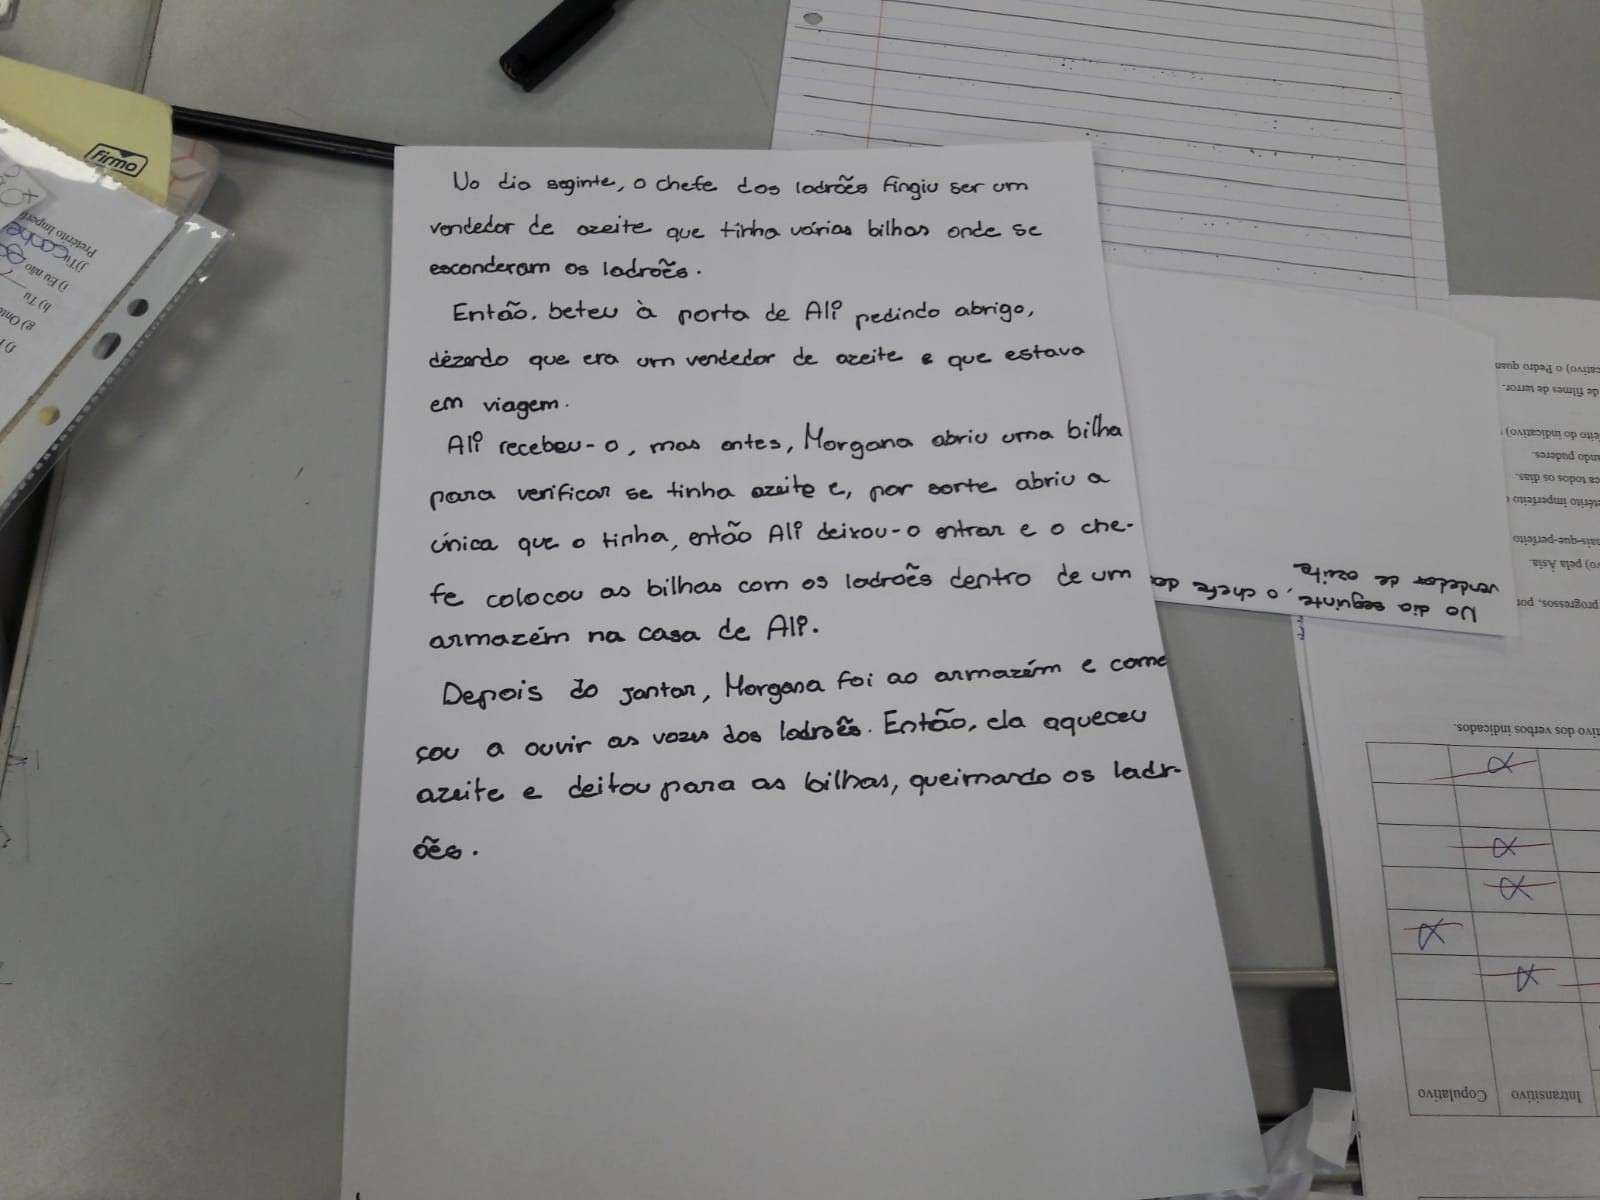 No dia seginte, o chefe dos ladroẽs fingiu ser um
vendedor de azeite que tinha várias bilhas onde se
esconderam os ladroẽs.
Então, beteu à porta de Ali pedindo abrigo,
dezendo que era um vendedor de azeite e que estava
em viagem.
Ali recebeu-o, mas antes, Morgana abriu uma bilha
para verificar se tinha azeite e, por sorte abriu a
única que o tinha, então Ali deixou-o entrar e o che-
fe colocou as bilhas com os ladroẽs dentro de um
armazém na casa de Ali.
Depois do jantar, Morgana foi ao armazém e come
sou a ouvir as vozes dos ladroẽs. Então, ela aqueceu
azeite e deitou para as bilhas, queimando os ladr-
ões.
No dia seguinte, o chefe do
vendedor de azeite
Firmo
Pretérito Imperf
i) Eu não
h) Tu
cativo) o Pedro quan
de filmes de terror.
eito do indicativo)
ando puderes.
ca todos os dias.
etérito imperfeito
ais-que-perfeito
vo) pela Ásia.
progressos, por
tivo dos verbos indicados.
Intransitivo
Copulativo